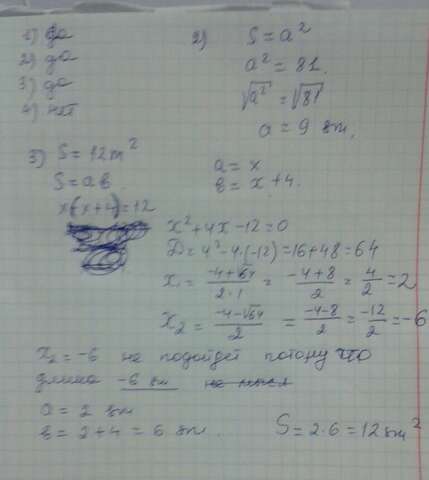 1) да
2) да
3) да
4) нет
2) S = a²
a² = 81.
√a² = √81
a = 9 км.
3) S = 12 м²
S = a в
x(x+4) = 12
a = x
в = x + 4.
x² + 4x - 12 = 0
D = 4² - 4·(-12) = 16 + 48 = 64
x₁ = (-4+√64)/(2·1) = (-4+8)/2 = 4/2 = 2
x₂ = (-4-√64)/2 = (-4-8)/2 = -12/2 = -6
x₂ = -6 не подойдет потому что
длина -6 км
a = 2 км
в = 2 + 4 = 6 км.
S = 2·6 = 12 км²